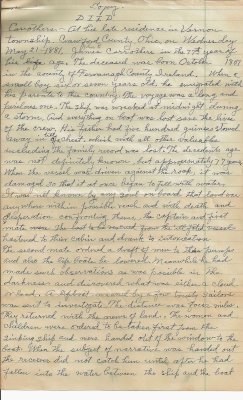 Copy.
D I E D
Carothers - At his late residence in Vernon
Township, Crawford County, Ohio, on Wednesday
May 21 - 1881. James Carothers in the 77th year of
his age. The deceased was born October 180
in the county of Fermanagh County Ireland. When a
small boy six or seven years old, he emigrated with
his parents to this country. The voyage was a long and
perilous one. The ship was wrecked at midnight during
a storm, and everything on boat was lost save the lives
of the crew. His father had five hundred guineas stowed
away in a chest which with all other valuables
including the family record was lost. The decedents age
was not definitely known, but approximately 77 years
When the vessel was driven against the rock, it was
damaged so that it at once began to fill with water.
It was not known by any and on board that land was
anywhere within possible reach and with death and
desperation confronting them, the captain and first
mate whom the boat to be rescued from the ill fated vessel
hastened to their cabins and drank to intoxication.
The second mate ordered a part of men to the pumps
and also the life boats be lowered. Meanwhile he had
made such observations as was possible in the
darkness and discovered what was either a cloud
or land. A lifeboat manned by a few trusty sailors
was sent to investigate. The distance was four miles.
They returned with the news of land. The women and
children were ordered to be taken first from the
sinking ship and were handed out of the window to the
boat. When the subject of narrative was handed out
the receiver did not catch him until after he had
fallen into the water between the ship and the boat